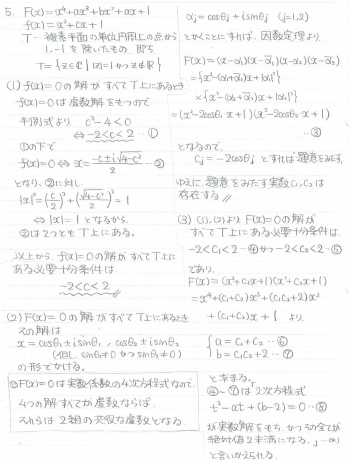 5. F(x)=x⁴+ax³+bx²+ax+1
f(x)=x²+cx+1
T…複素平面の単位円周上の点から
1,-1を除いたもの. 即ち
T={z∈ℂ | |z|=1かつz∉ℝ}
(1) f(x)=0の解がすべてT上にあるとき
f(x)=0は虚数解をもつので
判別式より c²-4<0
⇔ -2<c<2 …①
①の下で
f(x)=0⇔x=(-c±i√(4-c²))/2 …②
となり, ②に対し
|x|²=(c/2)²+(√(4-c²)/2)²=1
⇔|x|=1となるから
②は2つともT上にある。
以上から f(x)=0の解がすべてT上に
ある必要十分条件は
-2<c<2
(2) F(x)=0の解がすべてT上にあるとき
その解は
x=cosθ₁±isinθ₁, cosθ₂±isinθ₂
(但し, sinθ₁≠0かつsinθ₂≠0)
の形でかける。
∵F(x)=0は実数係数の4次方程式なので
4つの解すべてが虚数ならば,
それらは2組の共役な虚数となる。
αj=cosθj+isinθj (j=1,2)
とかくことにすれば, 因数定理より,
F(x)=(x-α₁)(x-ᾱ₁)(x-α₂)(x-ᾱ₂)
={x²-(α₁+ᾱ₁)x+|α₁|²}
×{x²-(α₂+ᾱ₂)x+|α₂|²}
=(x²-2cosθ₁·x+1)(x²-2cosθ₂·x+1)
…③
となるので,
cj=-2cosθj とすれば題意をみたす。
ゆえに, 題意をみたす実数c₁,c₂は
存在する
(3) (1),(2)より F(x)=0の解が
すべてT上にある必要十分条件は
-2<c₁<2 …④かつ-2<c₂<2 …⑤
であり,
F(x)=(x²+c₁x+1)(x²+c₂x+1)
=x⁴+(c₁+c₂)x³+(c₁c₂+2)x²
+(c₁+c₂)x+1 より,
{a=c₁+c₂ …⑥
b=c₁c₂+2 …⑦
と求まる。
④~⑦は2次方程式
t²-at+(b-2)=0 …⑧
が実数解をもち, かつその全てが
絶対値2未満になる。
と言いかえられる.